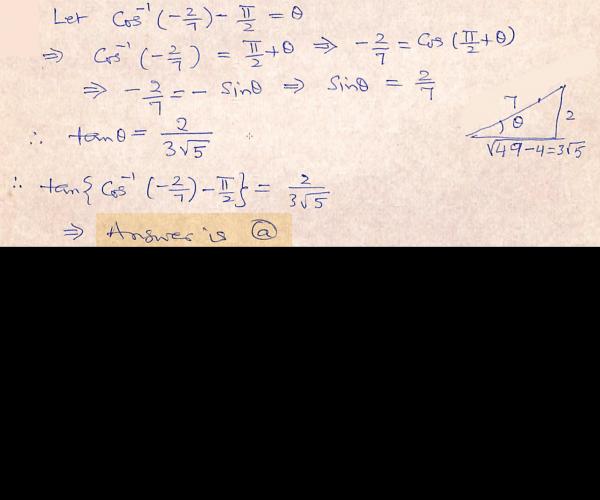 Let Cos⁻¹(-2/7) - π/2 = θ
⇒ Cos⁻¹(-2/7) = π/2 + θ ⇒ -2/7 = Cos(π/2 + θ)
⇒ -2/7 = - Sinθ ⇒ Sinθ = 2/7
∴ tanθ = 2/3√5
7
θ
2
√49-4=3√5
∴ tan{Cos⁻¹(-2/7) - π/2} = 2/3√5
⇒ Answer is ⓐ